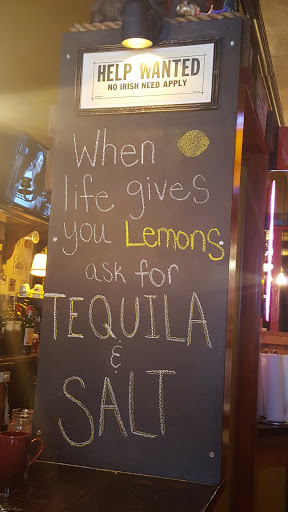 HELP WANTED
NO IRISH NEED APPLY
When
life gives
you Lemons
ask for
TEQUILA
&
SALT